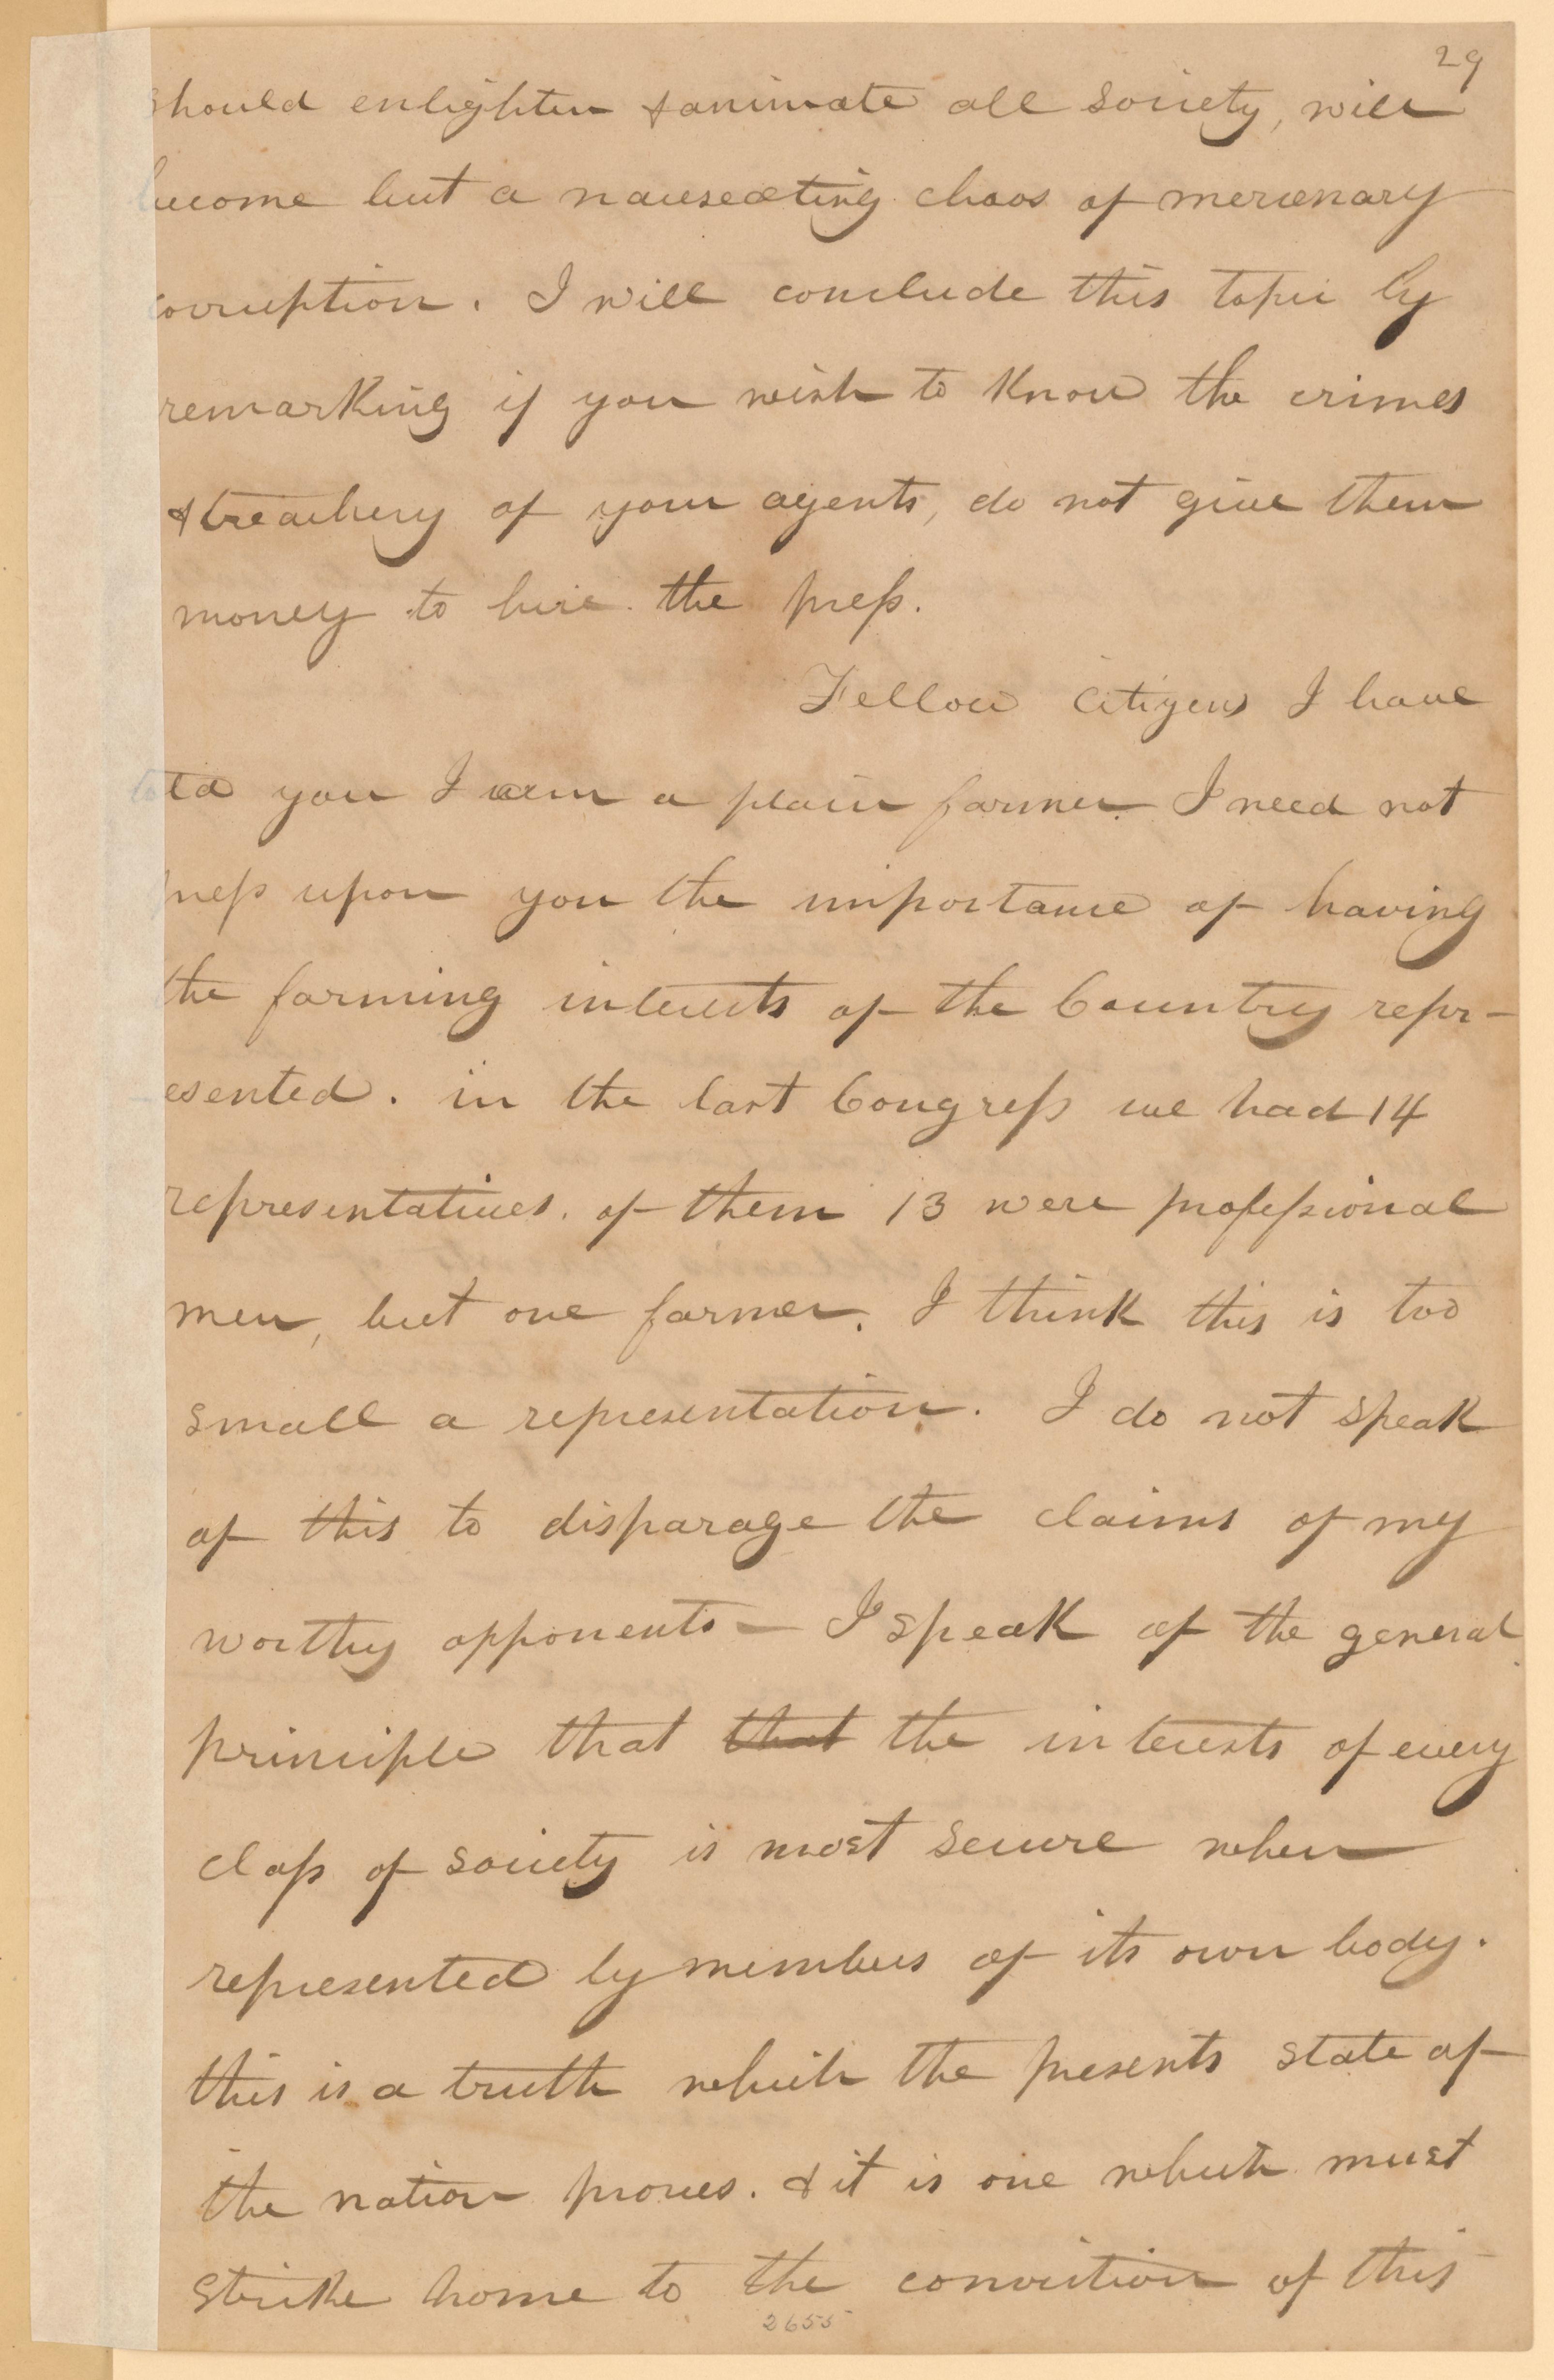 29
should enlighten & animate all society, will
become but a nauseating chaos of mercenary
corruption. I will conclude this topic by
remarking if you wish to know the crimes
& treachery of your agents, do not give them
money to hire the press.
Fellow Citizens I have
told you I am a plain farmer. I need not
press upon you the importance of having
the farming interests of the Country repr-
esented. in the last Congress we had 14
representatives. of them 13 were professional
men, but one farmer. I think this is too
small a representation. I do not speak
of this to disparage the claims of my
worthy opponents — I speak of the general
principle that that the interests of every
class of society is most secure when
represented by members of its own body.
this is a truth which the presents state of
the nation proves. & it is one which must
strike home to the conviction of this
2655